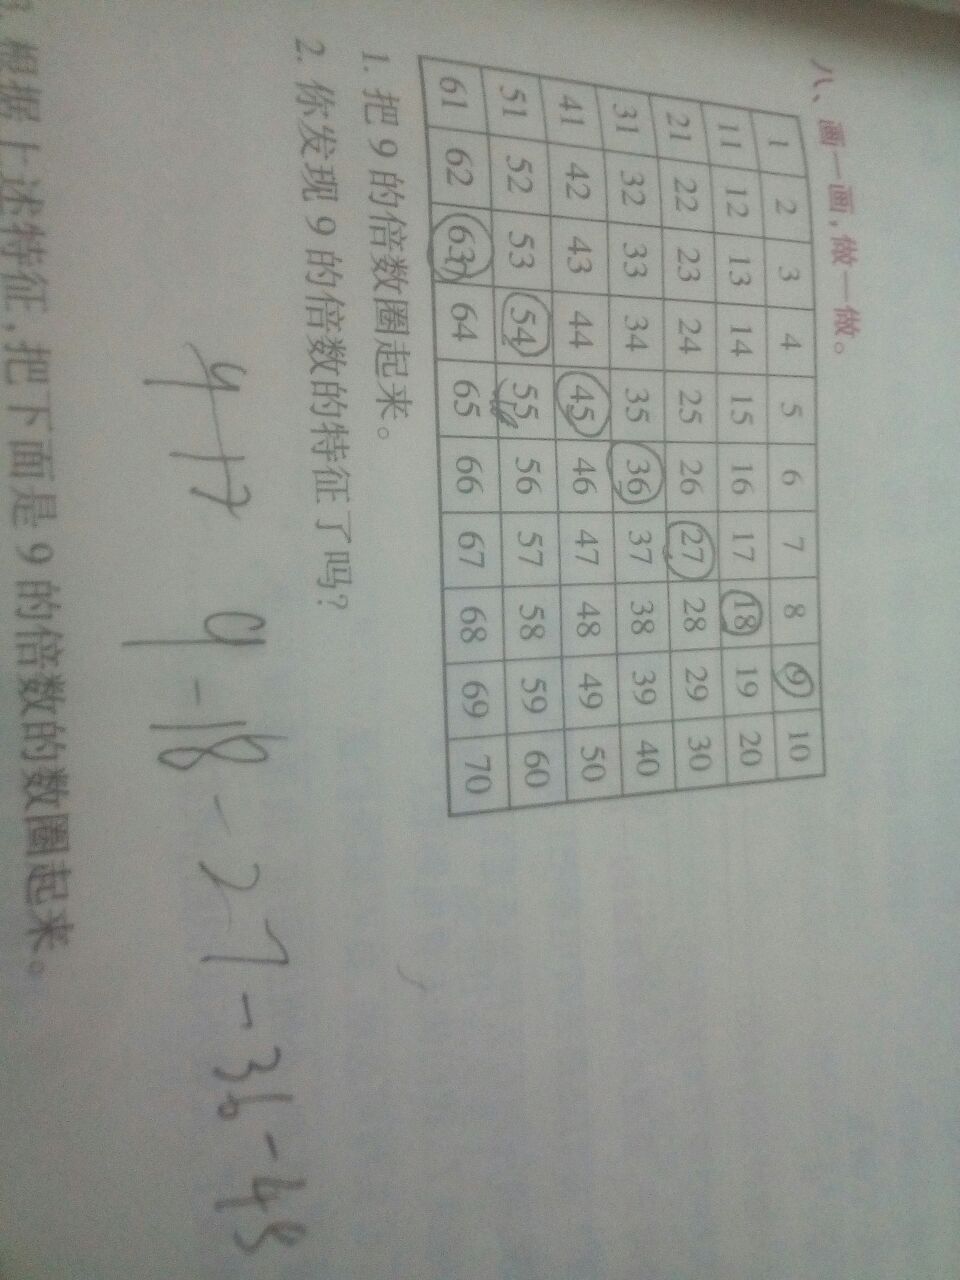 八、画一画,做一做。
1 2 3 4 5 6 7 8 9 10
11 12 13 14 15 16 17 18 19 20
21 22 23 24 25 26 27 28 29 30
31 32 33 34 35 36 37 38 39 40
41 42 43 44 45 46 47 48 49 50
51 52 53 54 55 56 57 58 59 60
61 62 63 64 65 66 67 68 69 70
1. 把9的倍数圈起来。
2. 你发现9的倍数的特征了吗?
9-18-27-36-45
根据上述特征,把下面是9的倍数的数圈起来。